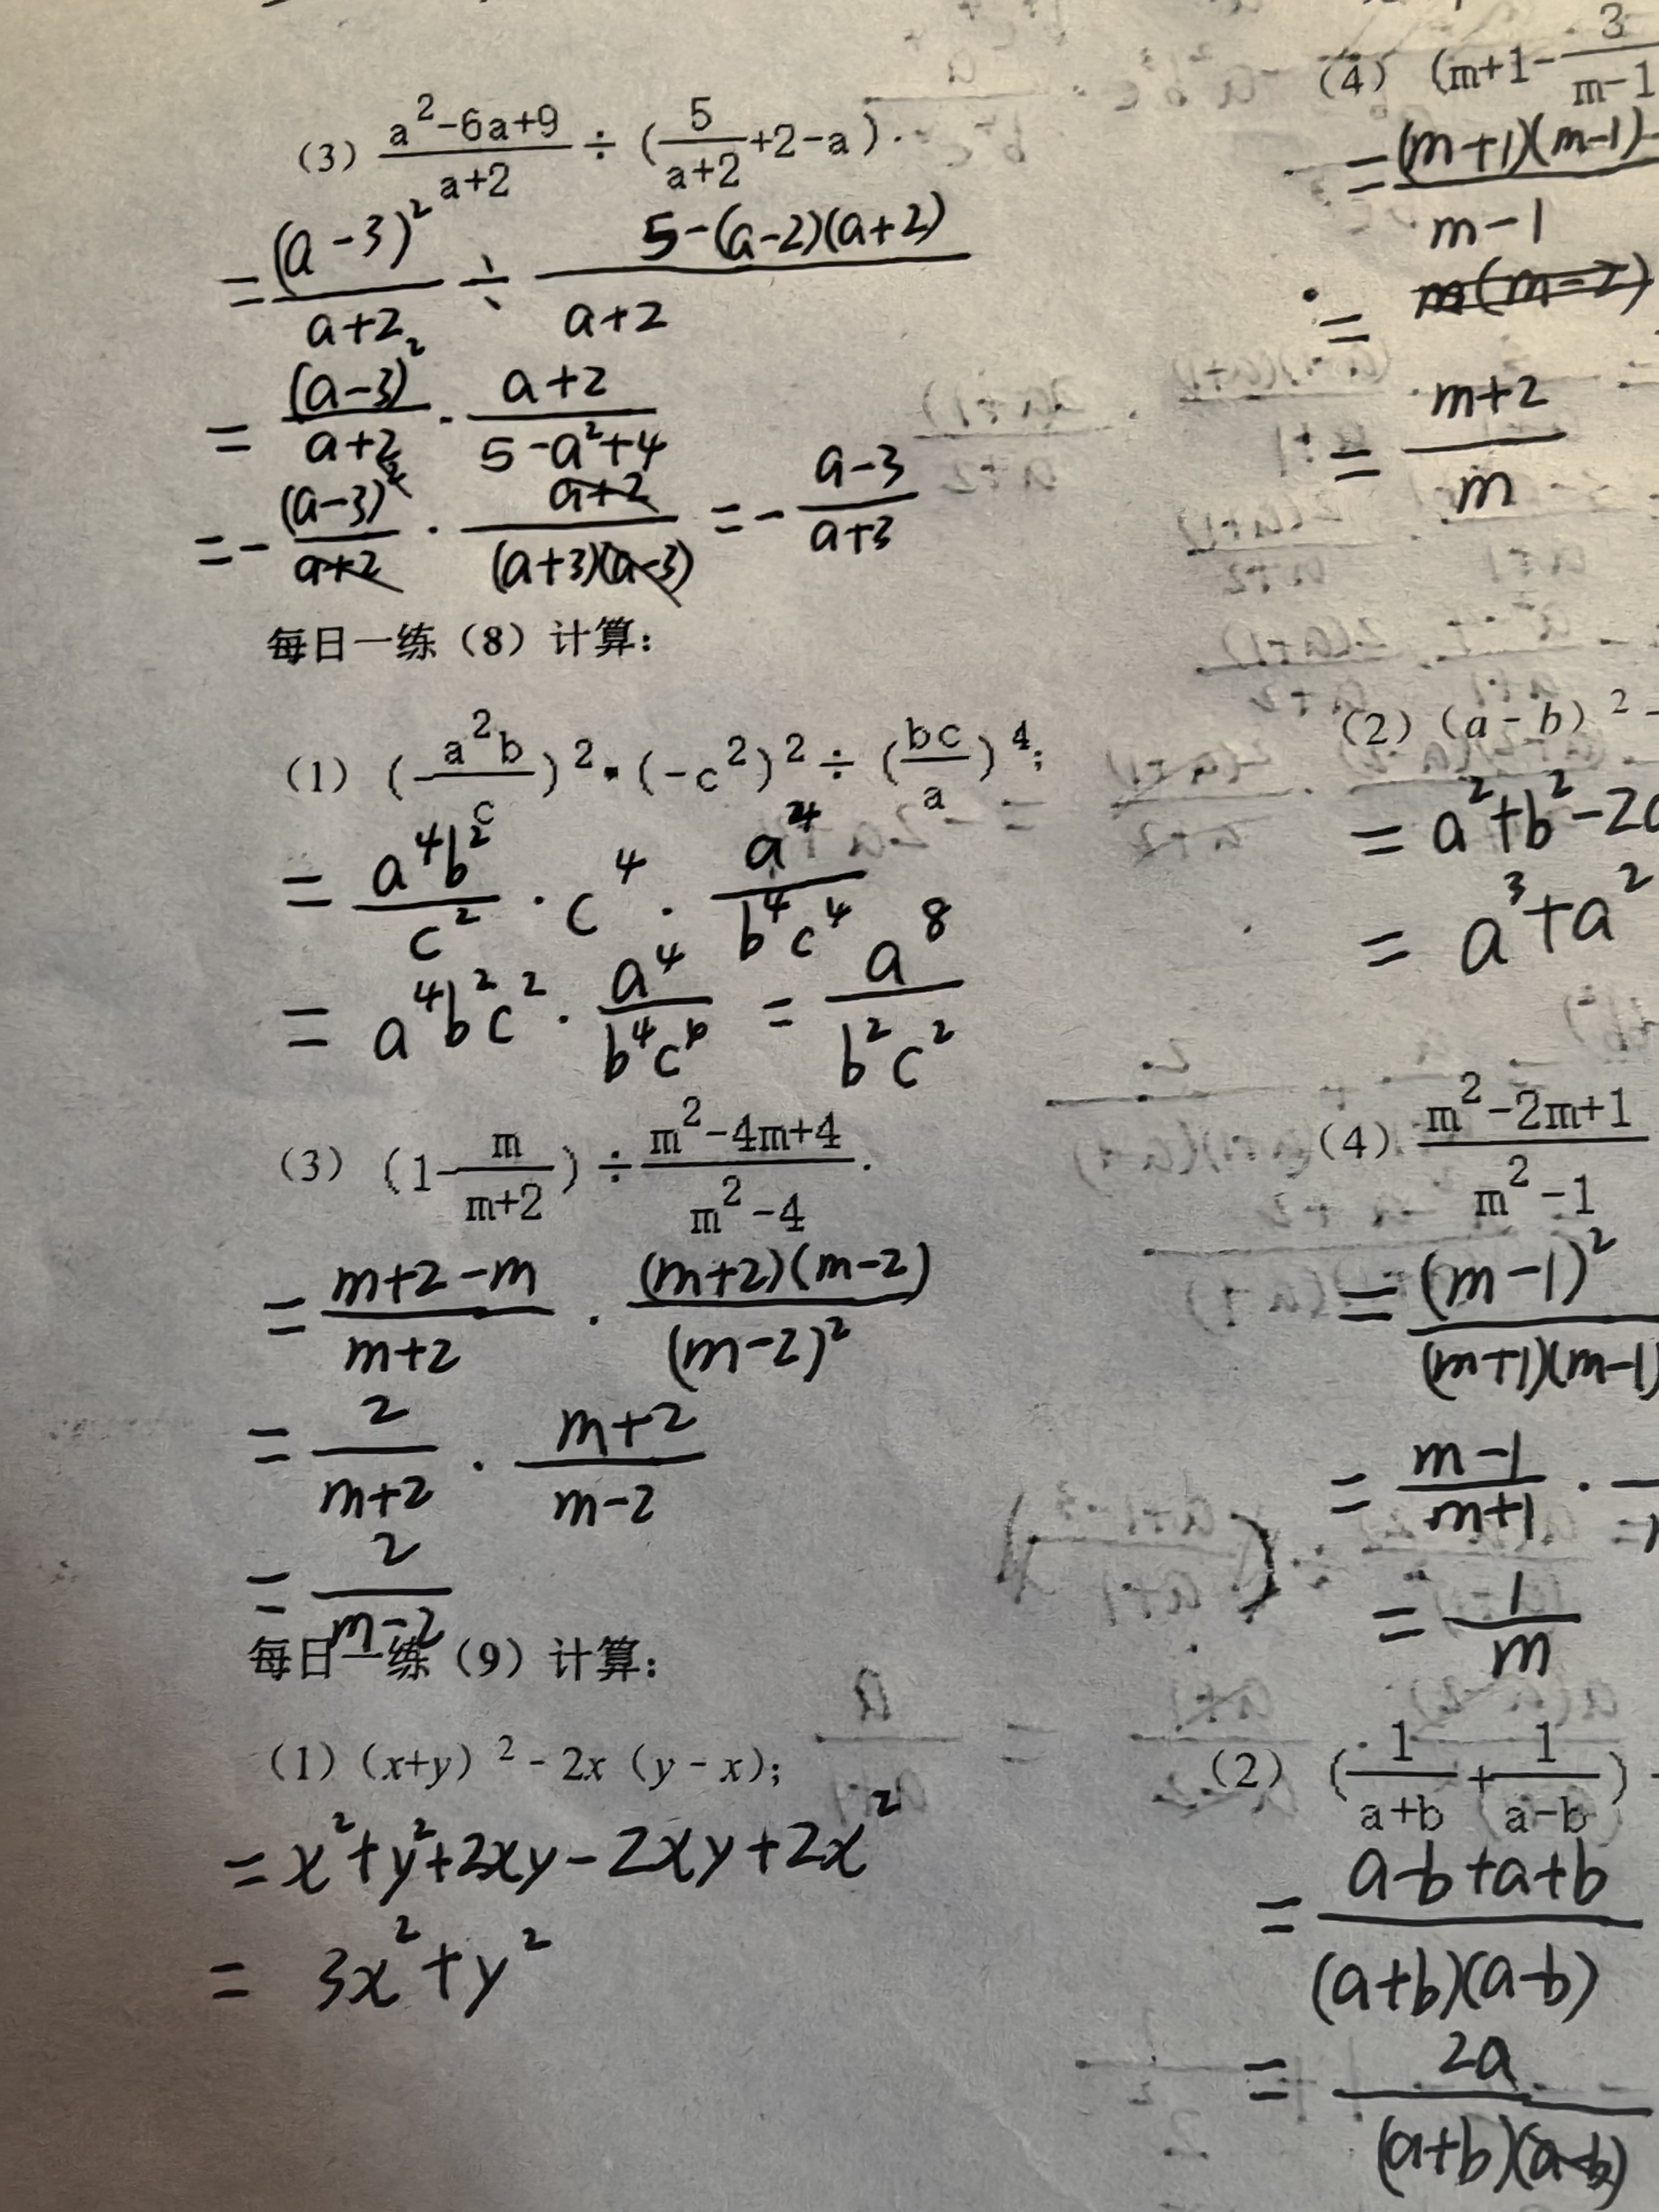 (3) \frac{a^2-6a+9}{a+2} ÷ (\frac{5}{a+2}+2-a).
= \frac{(a-3)^2}{a+2} ÷ \frac{5-(a-2)(a+2)}{a+2}
= \frac{(a-3)^2}{a+2} · \frac{a+2}{5-a^2+4}
= - \frac{(a-3)^2}{a+2} · \frac{a+2}{(a+3)(a-3)} = - \frac{a-3}{a+3}
(4) (m+1-\frac{3}{m-1}
= \frac{(m+1)(m-1)-}{m-1}
= m(m-2)
= \frac{m+2}{m}
每日一练（8）计算：
(1) (\frac{a^2b}{c})^2 · (-c^2)^2 ÷ (\frac{bc}{a})^4;
= \frac{a^4b^2}{c^2} · c^4 · \frac{a^4}{b^4c^4}
= a^4b^2c^2 · \frac{a^4}{b^4c^4} = \frac{a^8}{b^2c^2}
(2) (a-b)^2-
= a^2+b^2-2a
= a^3+a^2
(3) (1-\frac{m}{m+2}) ÷ \frac{m^2-4m+4}{m^2-4}.
= \frac{m+2-m}{m+2} · \frac{(m+2)(m-2)}{(m-2)^2}
= \frac{2}{m+2} · \frac{m+2}{m-2}
= \frac{2}{m-2}
(4) \frac{m^2-2m+1}{m^2-1}
= \frac{(m-1)^2}{(m+1)(m-1)}
= \frac{m-1}{m+1} ·
= \frac{1}{m}
每日一练（9）计算：
(1) (x+y)^2-2x(y-x);
= x^2+y^2+2xy-2xy+2x^2
= 3x^2+y^2
(2) (\frac{1}{a+b}+\frac{1}{a-b})
= \frac{a-b+a+b}{(a+b)(a-b)}
= \frac{2a}{(a+b)(a-b)}